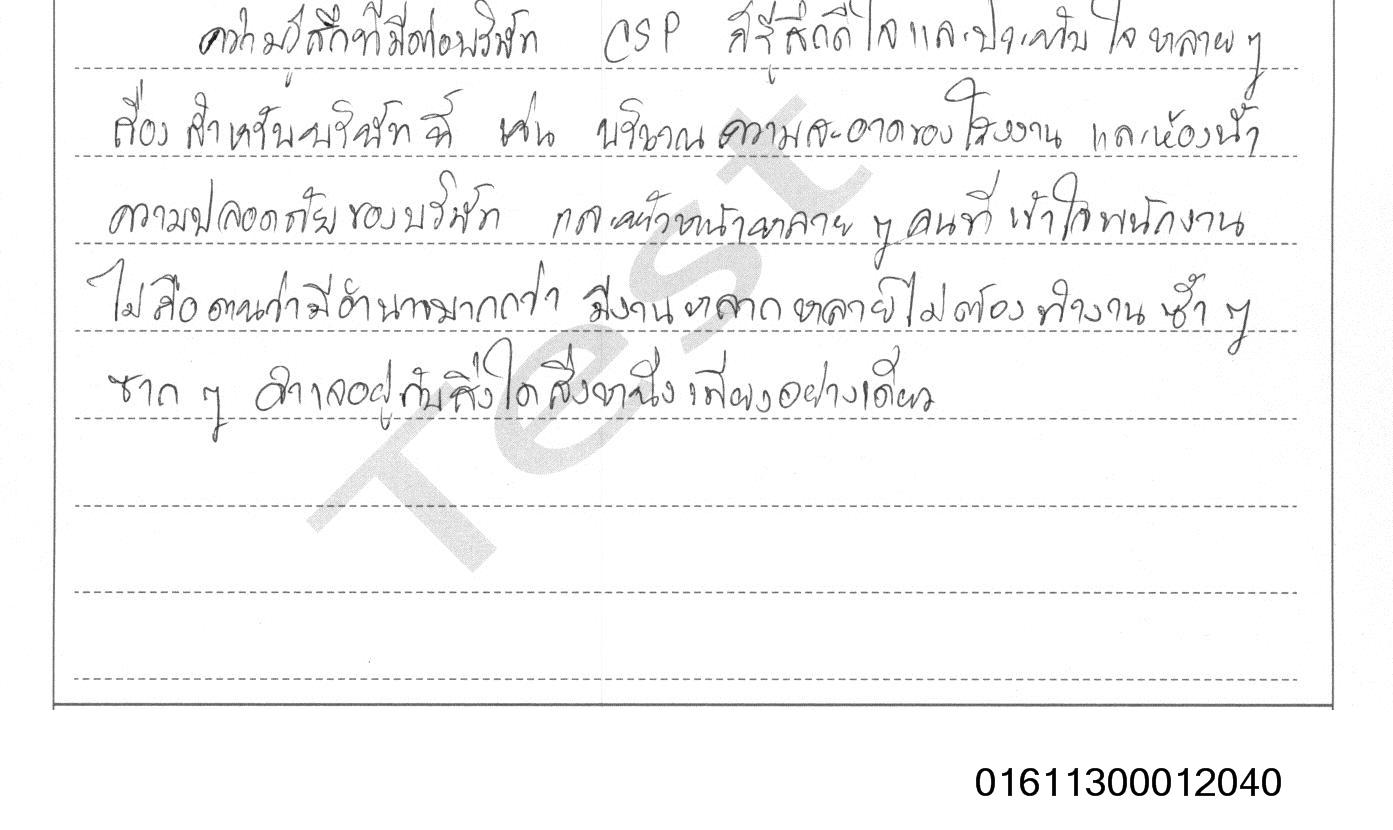 ความรู้สึกที่มีต่อบริษัท CSP ก็รู้สึกดีใจและประทับใจหลายๆ
เรื่องสำหรับบริษัทนี้ เช่น บริเวณความสะอาดของโรงงาน และห้องน้ำ
ความปลอดภัยของบริษัท และหัวหน้าหลายๆคนที่เข้าใจพนักงาน
ไม่ถือตนว่ามีอำนาจมากกว่า มีงานหลากหลายไม่ต้องทำงานซ้ำๆ
ซากๆ จำเจอยู่กับสิ่งใดสิ่งหนึ่งเพียงอย่างเดียว
Test
01611300012040